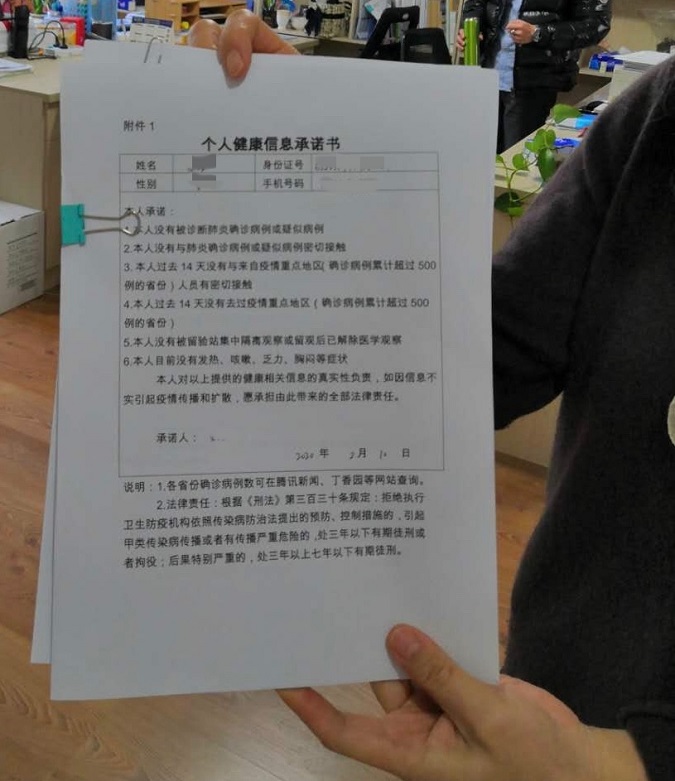 附件 1
个人健康信息承诺书
姓名 身份证号
性别 手机号码
本人承诺：
1.本人没有被诊断肺炎确诊病例或疑似病例
2.本人没有与肺炎确诊病例或疑似病例密切接触
3.本人过去 14 天没有与来自疫情重点地区（确诊病例累计超过 500
例的省份）人员有密切接触
4.本人过去 14 天没有去过疫情重点地区（确诊病例累计超过 500
例的省份）
5.本人没有被留验站集中隔离观察或留观后已解除医学观察
6.本人目前没有发热、咳嗽、乏力、胸闷等症状
本人对以上提供的健康相关信息的真实性负责，如因信息不
实引起疫情传播和扩散，愿承担由此带来的全部法律责任。
承诺人：
2020 年 2月 10 日
说明：1.各省份确诊病例数可在腾讯新闻、丁香园等网站查询。
2.法律责任：根据《刑法》第三百三十条规定：拒绝执行
卫生防疫机构依照传染病防治法提出的预防、控制措施的，引起
甲类传染病传播或者有传播严重危险的，处三年以下有期徒刑或
者拘役；后果特别严重的，处三年以上七年以下有期徒刑。